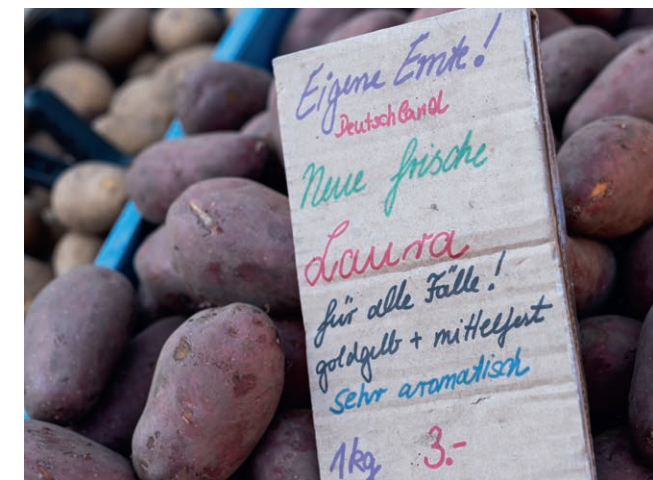 Eigene Ernte!
Deutschland
Neue frische
Laura
für alle Fälle!
goldgelb + mittelfest
sehr aromatisch
1kg 3.-